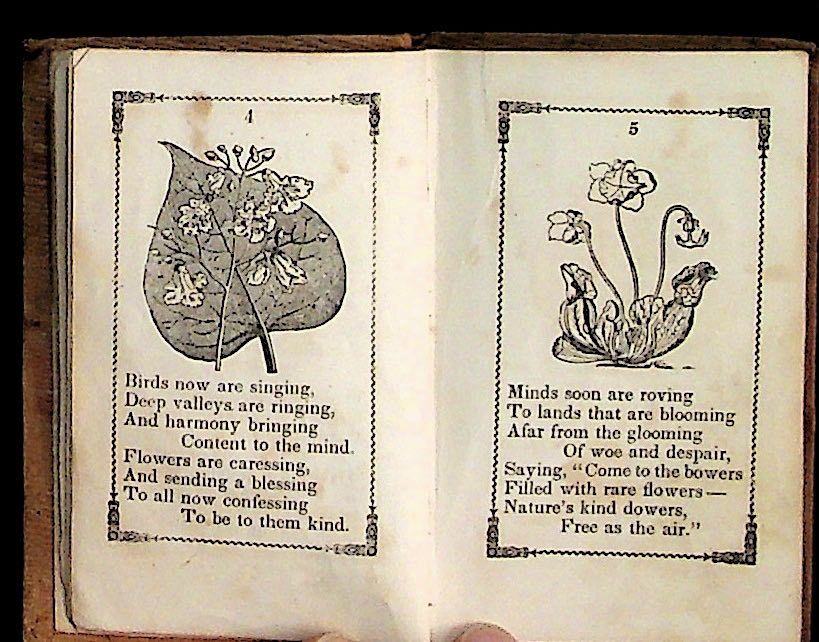 4
Birds now are singing,
Deep valleys are ringing,
And harmony bringing
Content to the mind.
Flowers are caressing,
And sending a blessing
To all now confessing
To be to them kind.
5
Minds soon are roving
To lands that are blooming
Afar from the glooming
Of woe and despair,
Saying, "Come to the bowers
Filled with rare flowers—
Nature's kind dowers,
Free as the air."